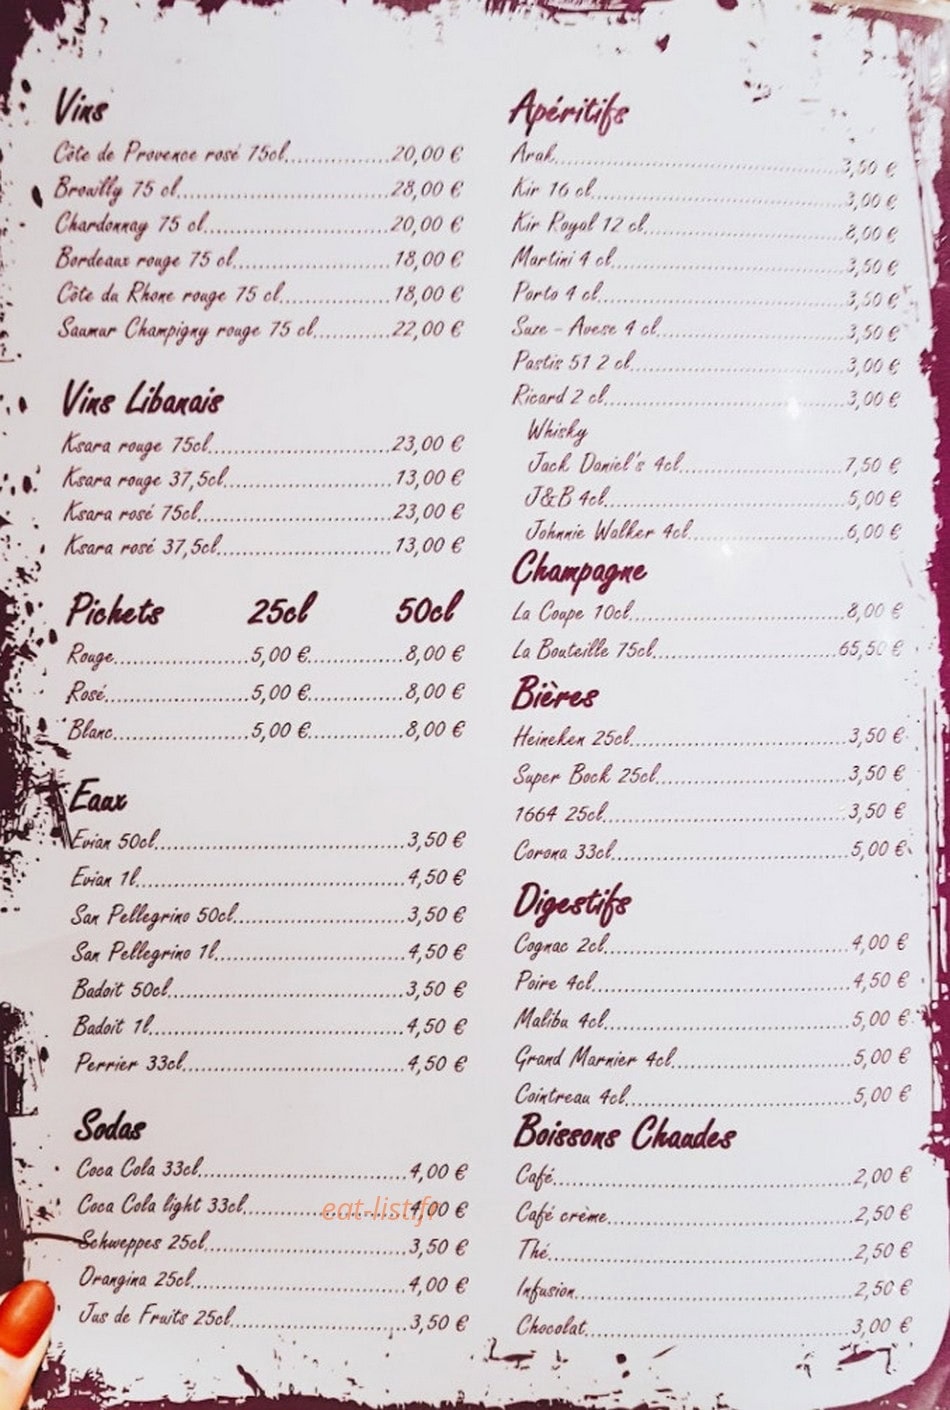 Vins
Côte de Provence rosé 75cl...20,00 €
Brouilly 75 cl...28,00 €
Chardonnay 75 cl...20,00 €
Bordeaux rouge 75 cl...18,00 €
Côte du Rhone rouge 75 cl...18,00 €
Saumur Champigny rouge 75 cl...22,00 €
Vins Libanais
Ksara rouge 75cl...23,00 €
Ksara rouge 37,5cl...13,00 €
Ksara rosé 75cl...23,00 €
Ksara rosé 37,5cl...13,00 €
Pichets 25cl 50cl
Rouge...5,00 €...8,00 €
Rosé...5,00 €...8,00 €
Blanc...5,00 €...8,00 €
Eaux
Evian 50cl...3,50 €
Evian 1l...4,50 €
San Pellegrino 50cl...3,50 €
San Pellegrino 1l...4,50 €
Badoit 50cl...3,50 €
Badoit 1l...4,50 €
Perrier 33cl...4,50 €
Sodas
Coca Cola 33cl...4,00 €
Coca Cola light 33cl...4,00 €
eat-list.fr
Schweppes 25cl...3,50 €
Orangina 25cl...4,00 €
Jus de Fruits 25cl...3,50 €
Apéritifs
Arak...3,50 €
Kir 16 cl...3,00 €
Kir Royal 12 cl...8,00 €
Martini 4 cl...3,50 €
Porto 4 cl...3,50 €
Suze - Avese 4 cl...3,50 €
Pastis 51 2 cl...3,00 €
Ricard 2 cl...3,00 €
Whisky
Jack Daniel's 4cl...7,50 €
J&B 4cl...5,00 €
Johnnie Walker 4cl...6,00 €
Champagne
La Coupe 10cl...8,00 €
La Bouteille 75cl...65,50 €
Bières
Heineken 25cl...3,50 €
Super Bock 25cl...3,50 €
1664 25cl...3,50 €
Corona 33cl...5,00 €
Digestifs
Cognac 2cl...4,00 €
Poire 4cl...4,50 €
Malibu 4cl...5,00 €
Grand Marnier 4cl...5,00 €
Cointreau 4cl...5,00 €
Boissons Chaudes
Café...2,00 €
Café crème...2,50 €
Thé...2,50 €
Infusion...2,50 €
Chocolat...3,00 €